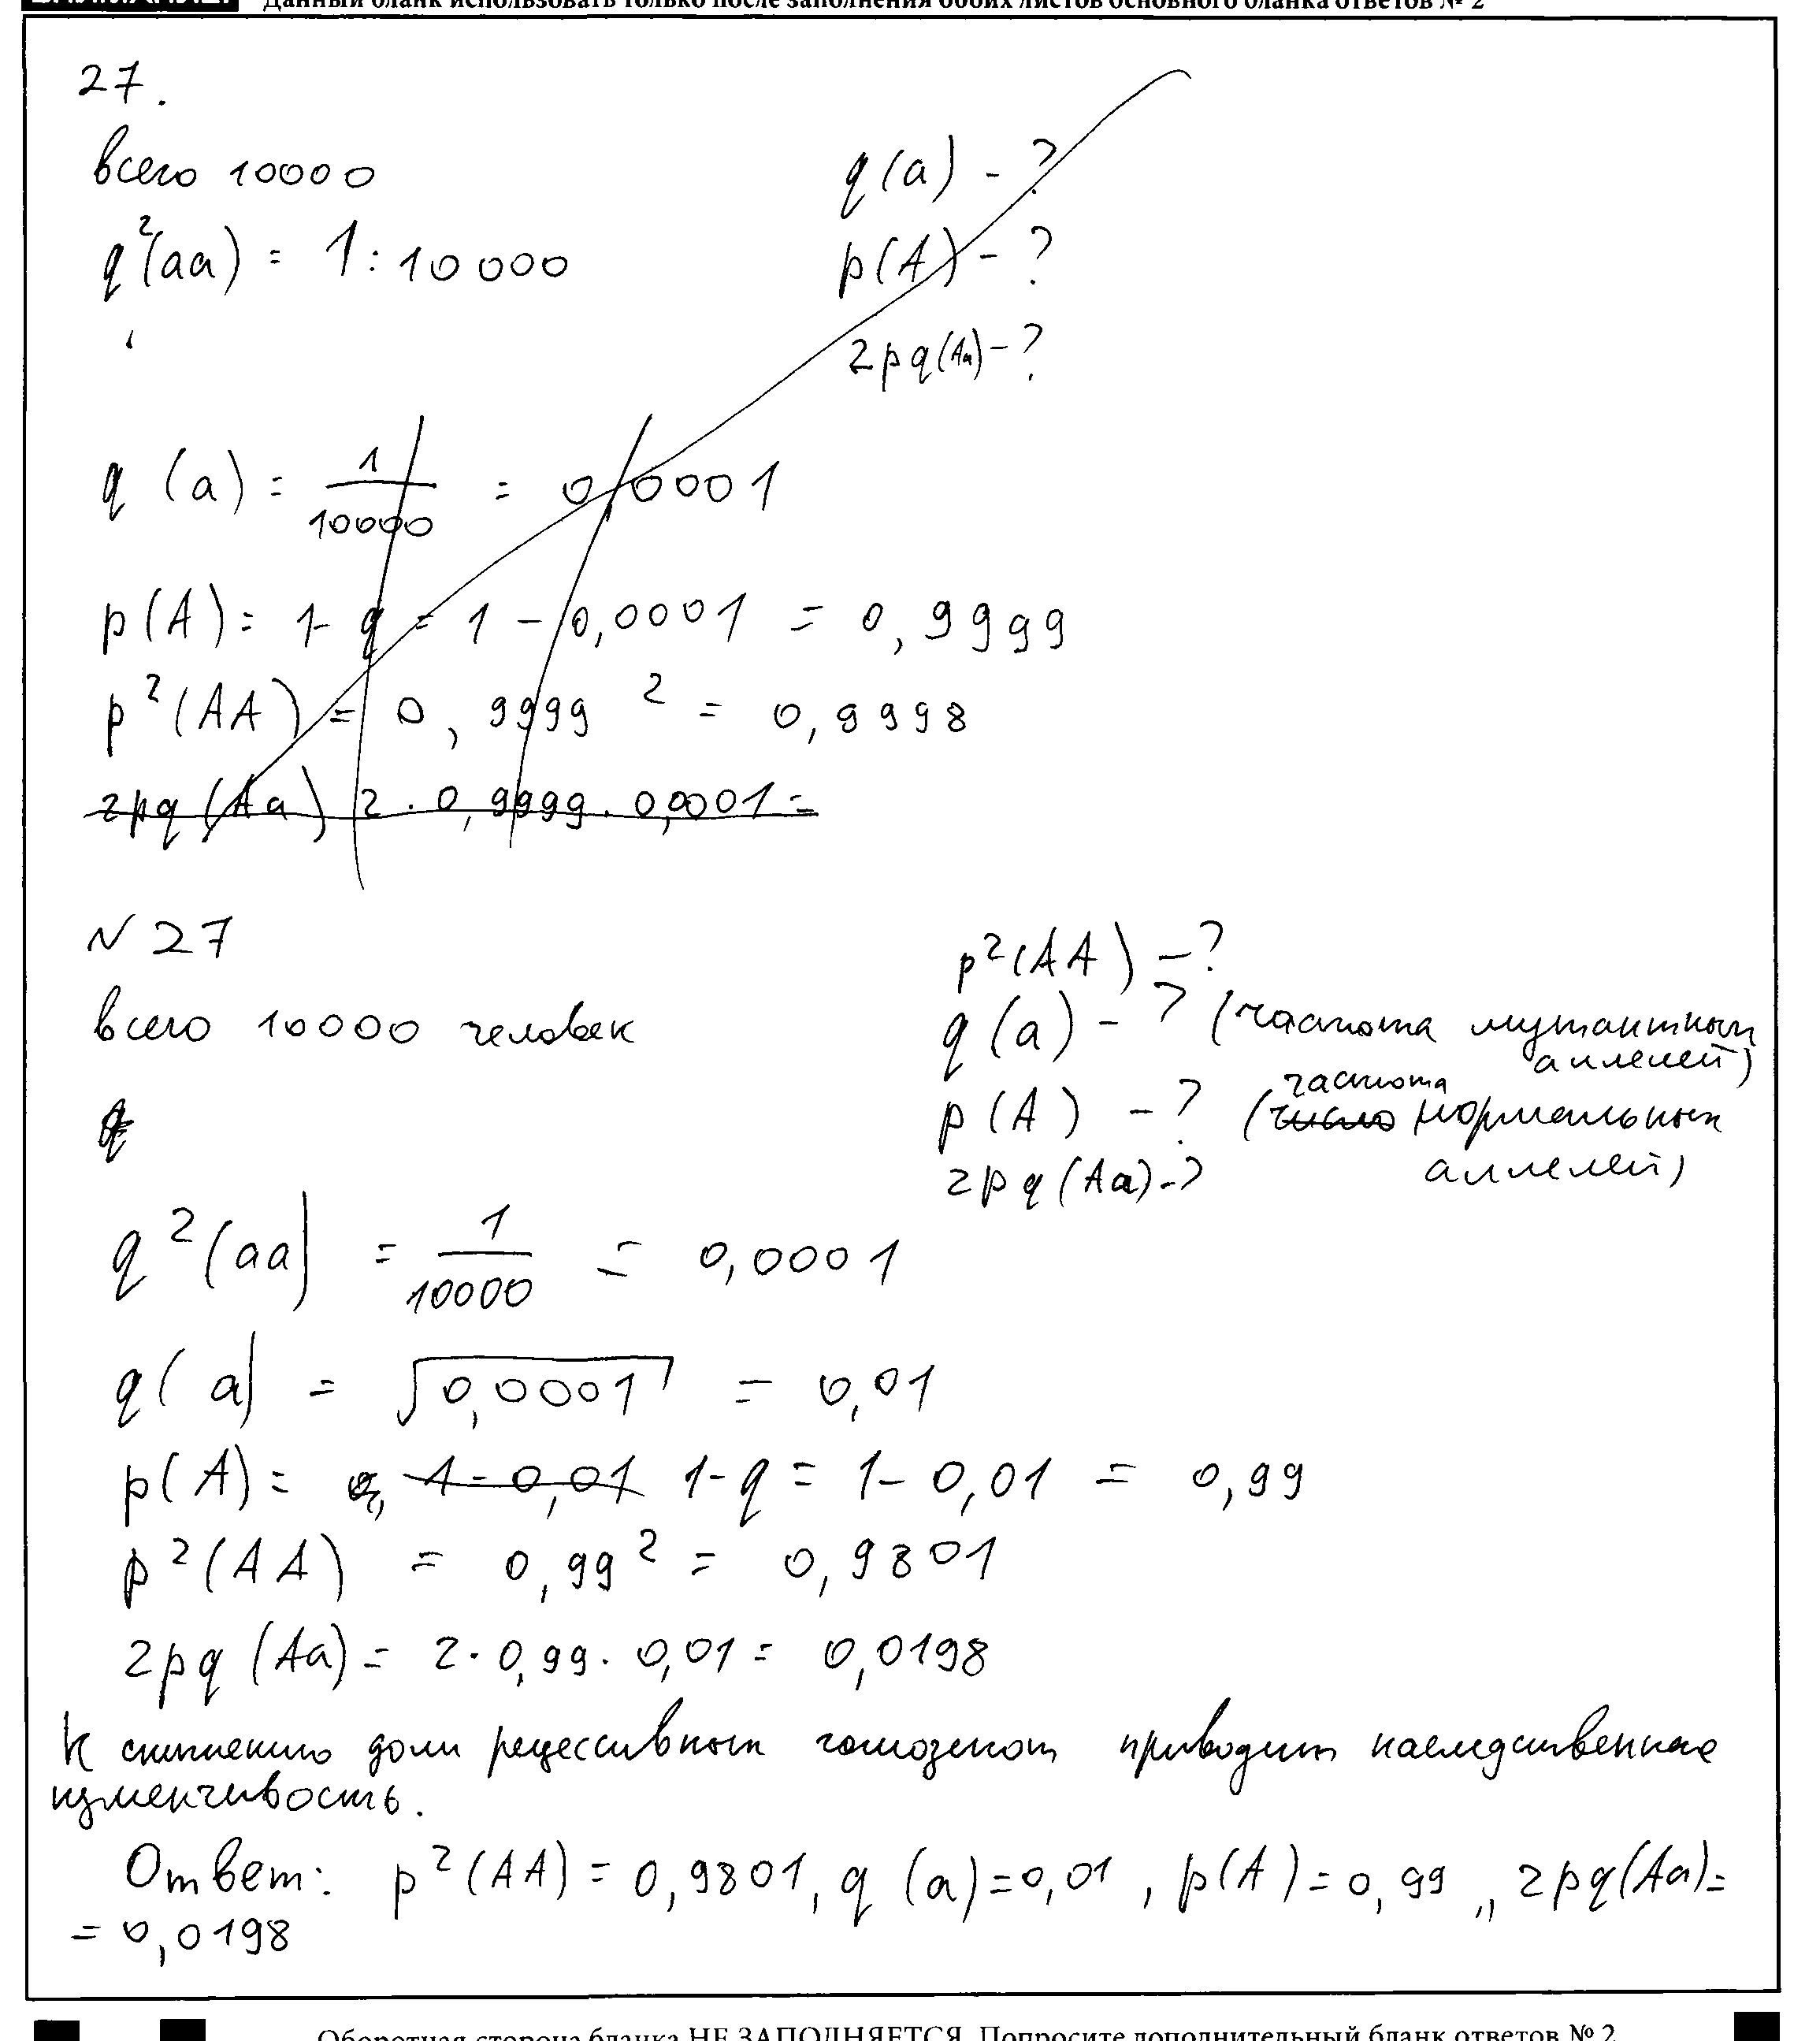 Данный бланк использовать только после заполнения обоих листов основного бланка ответов № 2
27.
всего 10000
q(a) - ?
q²(aa) = 1:10000
p(A) - ?
2pq(Aa) - ?
q (a) = 1/10000 = 0,0001
p(A) = 1- q = 1 - 0,0001 = 0,9999
p²(AA) = 0,9999² = 0,9998
2pq (Aa) 2 · 0,9999 · 0,0001 =
N 27
p²(AA) - ?
всего 10000 человек
q (a) - ? (частота мутантных
аллелей)
частота
p (A) - ? (число нормальных
аллелей)
2pq (Aa) - ?
q²(aa) = 1/10000 = 0,0001
q(a) = √0,0001 = 0,01
p(A) = 0, 1 - 0,01 1-q = 1- 0,01 = 0,99
p²(AA) = 0,99² = 0,9801
2pq (Aa) = 2 · 0,99 · 0,01 = 0,0198
К снижению доли рецессивных гомозигот приводит наследственная
изменчивость.
Ответ: p²(AA) = 0,9801, q (a) = 0,01, p(A) = 0,99, 2pq(Aa) =
= 0,0198
Оборотная сторона бланка НЕ ЗАПОЛНЯЕТСЯ. Попросите дополнительный бланк ответов № 2